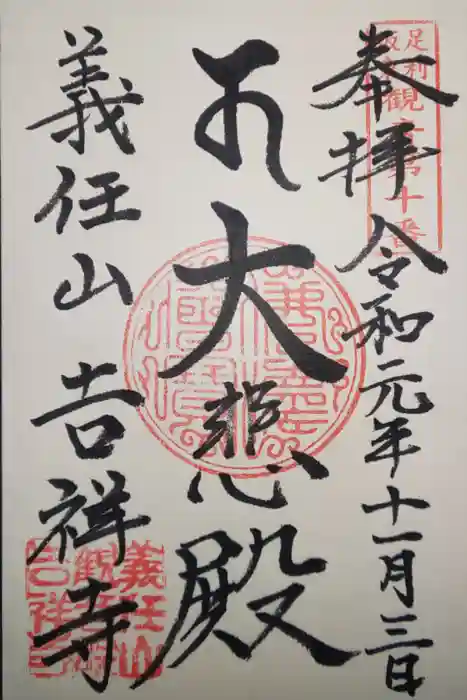 奉拝 令和元年十一月三日
大悲殿
義任山 吉祥寺
足利
観音第十番